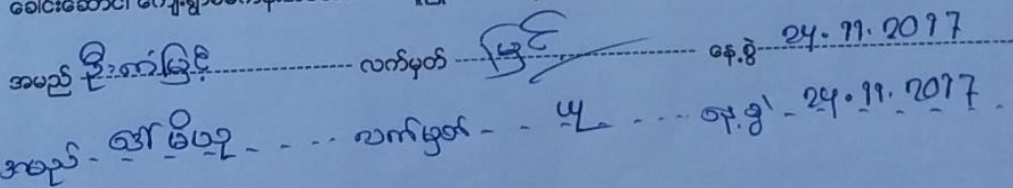 အမည် ဦးတင်မြင့် လက်မှတ် မြင့် နေ့စွဲ 24.11.2017
အမည် ဒေါ်မိယု လက်မှတ် ယု နေ့စွဲ 24.11.2017